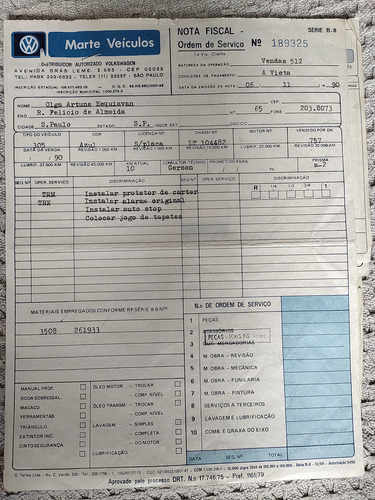 Marte Veículos
DISTRIBUIDOR AUTORIZADO VOLKSWAGEN
AVENIDA BRÁS LEME, 2.985 - CEP 02022
SÃO PAULO
NOTA FISCAL -
SÉRIE B-8
Ordem de Serviço Nº 189325
1a Via - Cliente
NATUREZA DA OPERAÇÃO Vendas 512
CONDIÇÕES DE PAGAMENTO A Vista
DATA DA EMISSÃO DA NOTA 06 / 11 / 90
NOME Olga Artune Esquiavan
END. R. Felicio de Almeida Nº 65 FONE 203.8073
CIDADE S.Paulo ESTADO S.P.
TIPO DO VEÍCULO COR LICENÇA Nº CHASSI Nº MOTOR Nº VENDIDO POR DN
305 Azul S/placa LT 104482 757
DATA DA VENDA REVISÃO 1.000 KM
90
KM ATUAL CONSULTOR TÉCNICO PROMETIDO PARA PRISMA
10 Gerson B-2
SEG Nº OPER. SERVIÇO DISCRIMINAÇÃO SEG Nº OPER. SERVIÇO DISCRIMINAÇÃO
R 1/4 1/2 3/4 1
TRM Instalar protetor de carter
TRE Instalar alarme original
Instalar auto stop
Colocar jogo de tapetes
MATERIAIS EMPREGADOS CONFORME RF SÉRIE B 8 Nºs
3508 261933
N.o DE ORDEM DE SERVIÇO
1 PEÇAS
2 ACESSÓRIOS
3 OUT. MERCADORIAS
4 M. OBRA - REVISÃO
5 M. OBRA - MECÂNICA
6 M. OBRA - FUNILARIA
7 M. OBRA - PINTURA
8 SERVIÇOS A TERCEIROS
9 LAVAGEM E LUBRIFICAÇÃO
10 COMB. E GRAXA DO EIXO
DATA SEG. Nº TOTAL
MANUAL PROP.
RODA SOBRESSAL.
MACACO
FERRAMENTAS
TRIÂNGULO
EXTINTOR INC.
CINTO SEGURANÇA
ÓLEO MOTOR - TROCAR
- COMP. NÍVEL
ÓLEO TRANSM. - TROCAR
- COMP. NÍVEL
LAVAGEM - SIMPLES
- COMPLETA
- DO MOTOR
LUBRIFICAÇÃO
Aprovado pelo processo DRT. No 17.746/75 - Pref. 1161/79